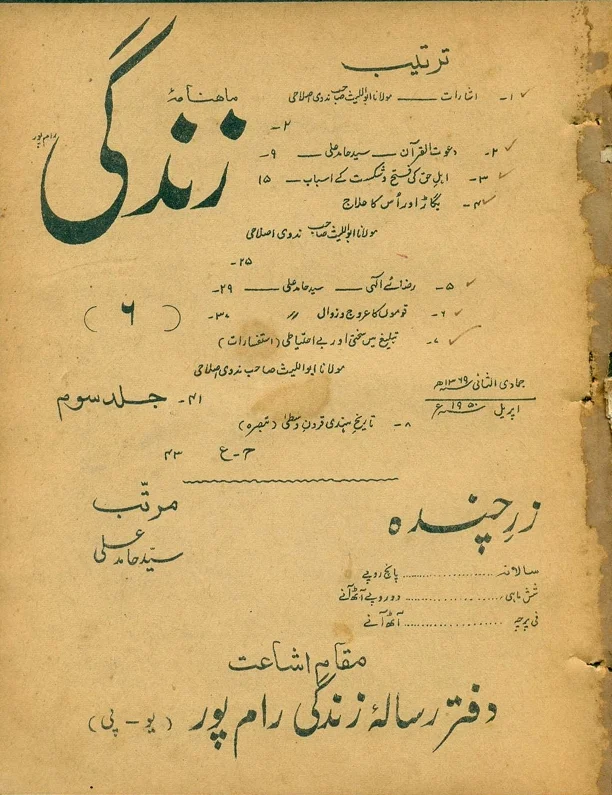 ماهنامۂ
زندگی
رام پور
ترتیب
۱۔ اشارات — مولانا ابواللیث صاحب ندوی اصلاحی
۲۔
۲۔ دعوت القرآن — سید حامد علی — ۹۔
۳۔ اہلِ حق کی فتح و شکست کے اسباب — ۱۵
۴۔ بگاڑ اور اُس کا علاج
مولانا ابواللیث صاحب ندوی اصلاحی
۲۵۔
۵۔ رضائے الٰہی — سید حامد علی — ۲۹۔
۶۔ قوموں کا عروج و زوال // ۳۷۔
۷۔ تبلیغ میں سختی اور بے احتیاطی (استفسارات)
مولانا ابواللیث صاحب ندوی اصلاحی
۴۱۔
۸۔ تاریخِ ہندی قرونِ وسطیٰ (تبصرہ)
ح۔ع ۴۳
(۶)
جلد سوم
جمادی الثانی ۱۳۶۹ھ
اپریل ۱۹۵۰ء
مرتّب
سیّد حامد علی
زرِ چندہ
سالانہ .................... پانچ روپے
شش ماہی .................. دو روپے آٹھ آنے
فی پرچہ .................. آٹھ آنے
مقامِ اشاعت
دفتر رسالۂ زندگی رام پور (یو-پی)